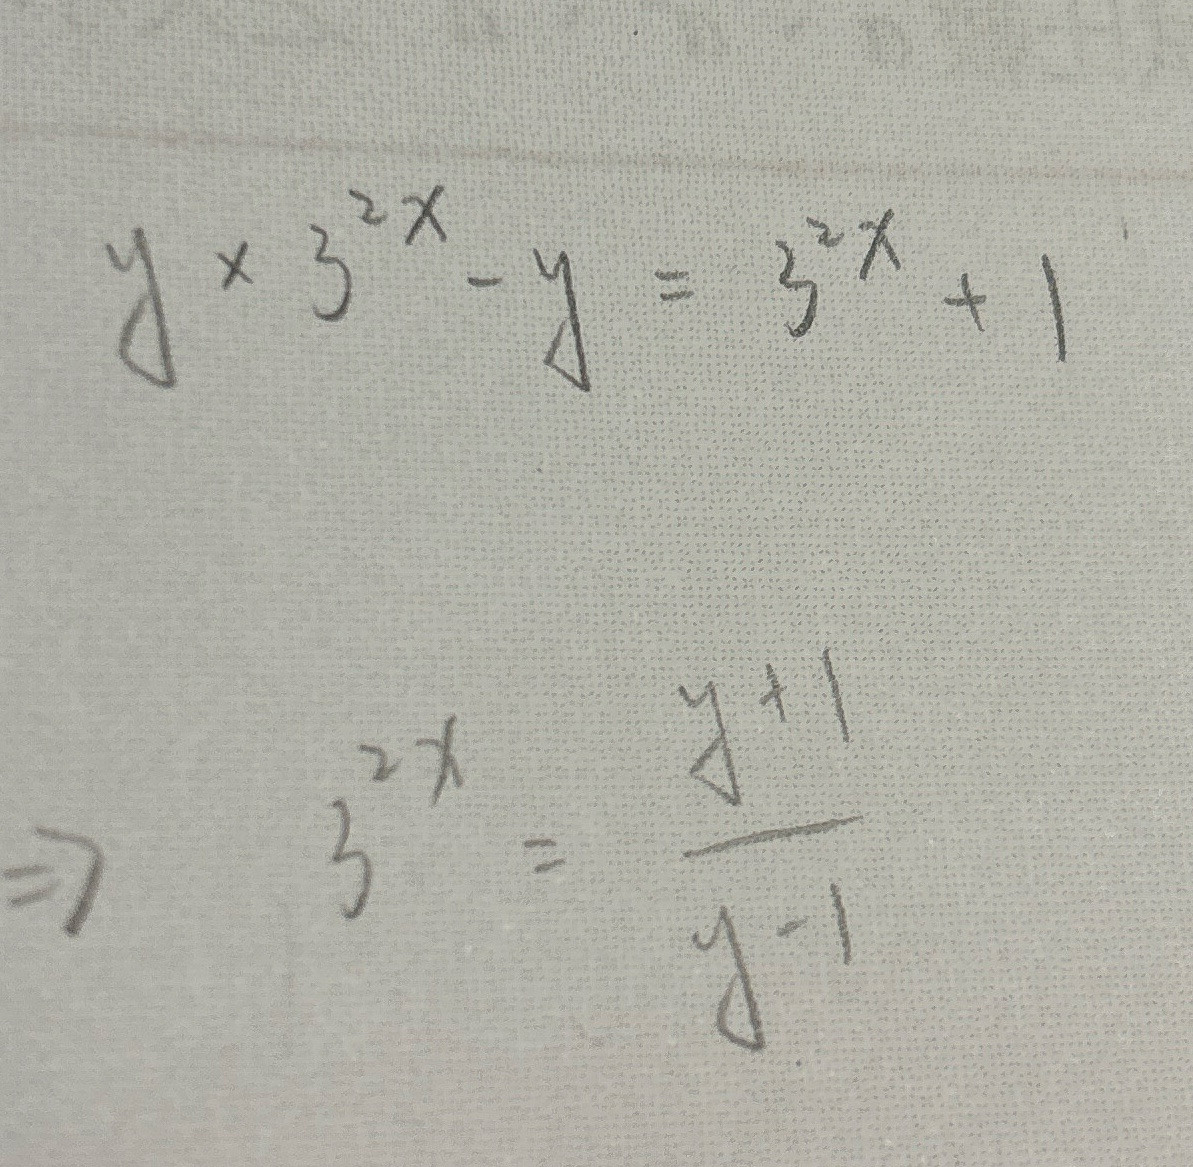 y × 3^{2x} - y = 3^{2x} + 1
⇒ 3^{2x} = \frac{y+1}{y-1}